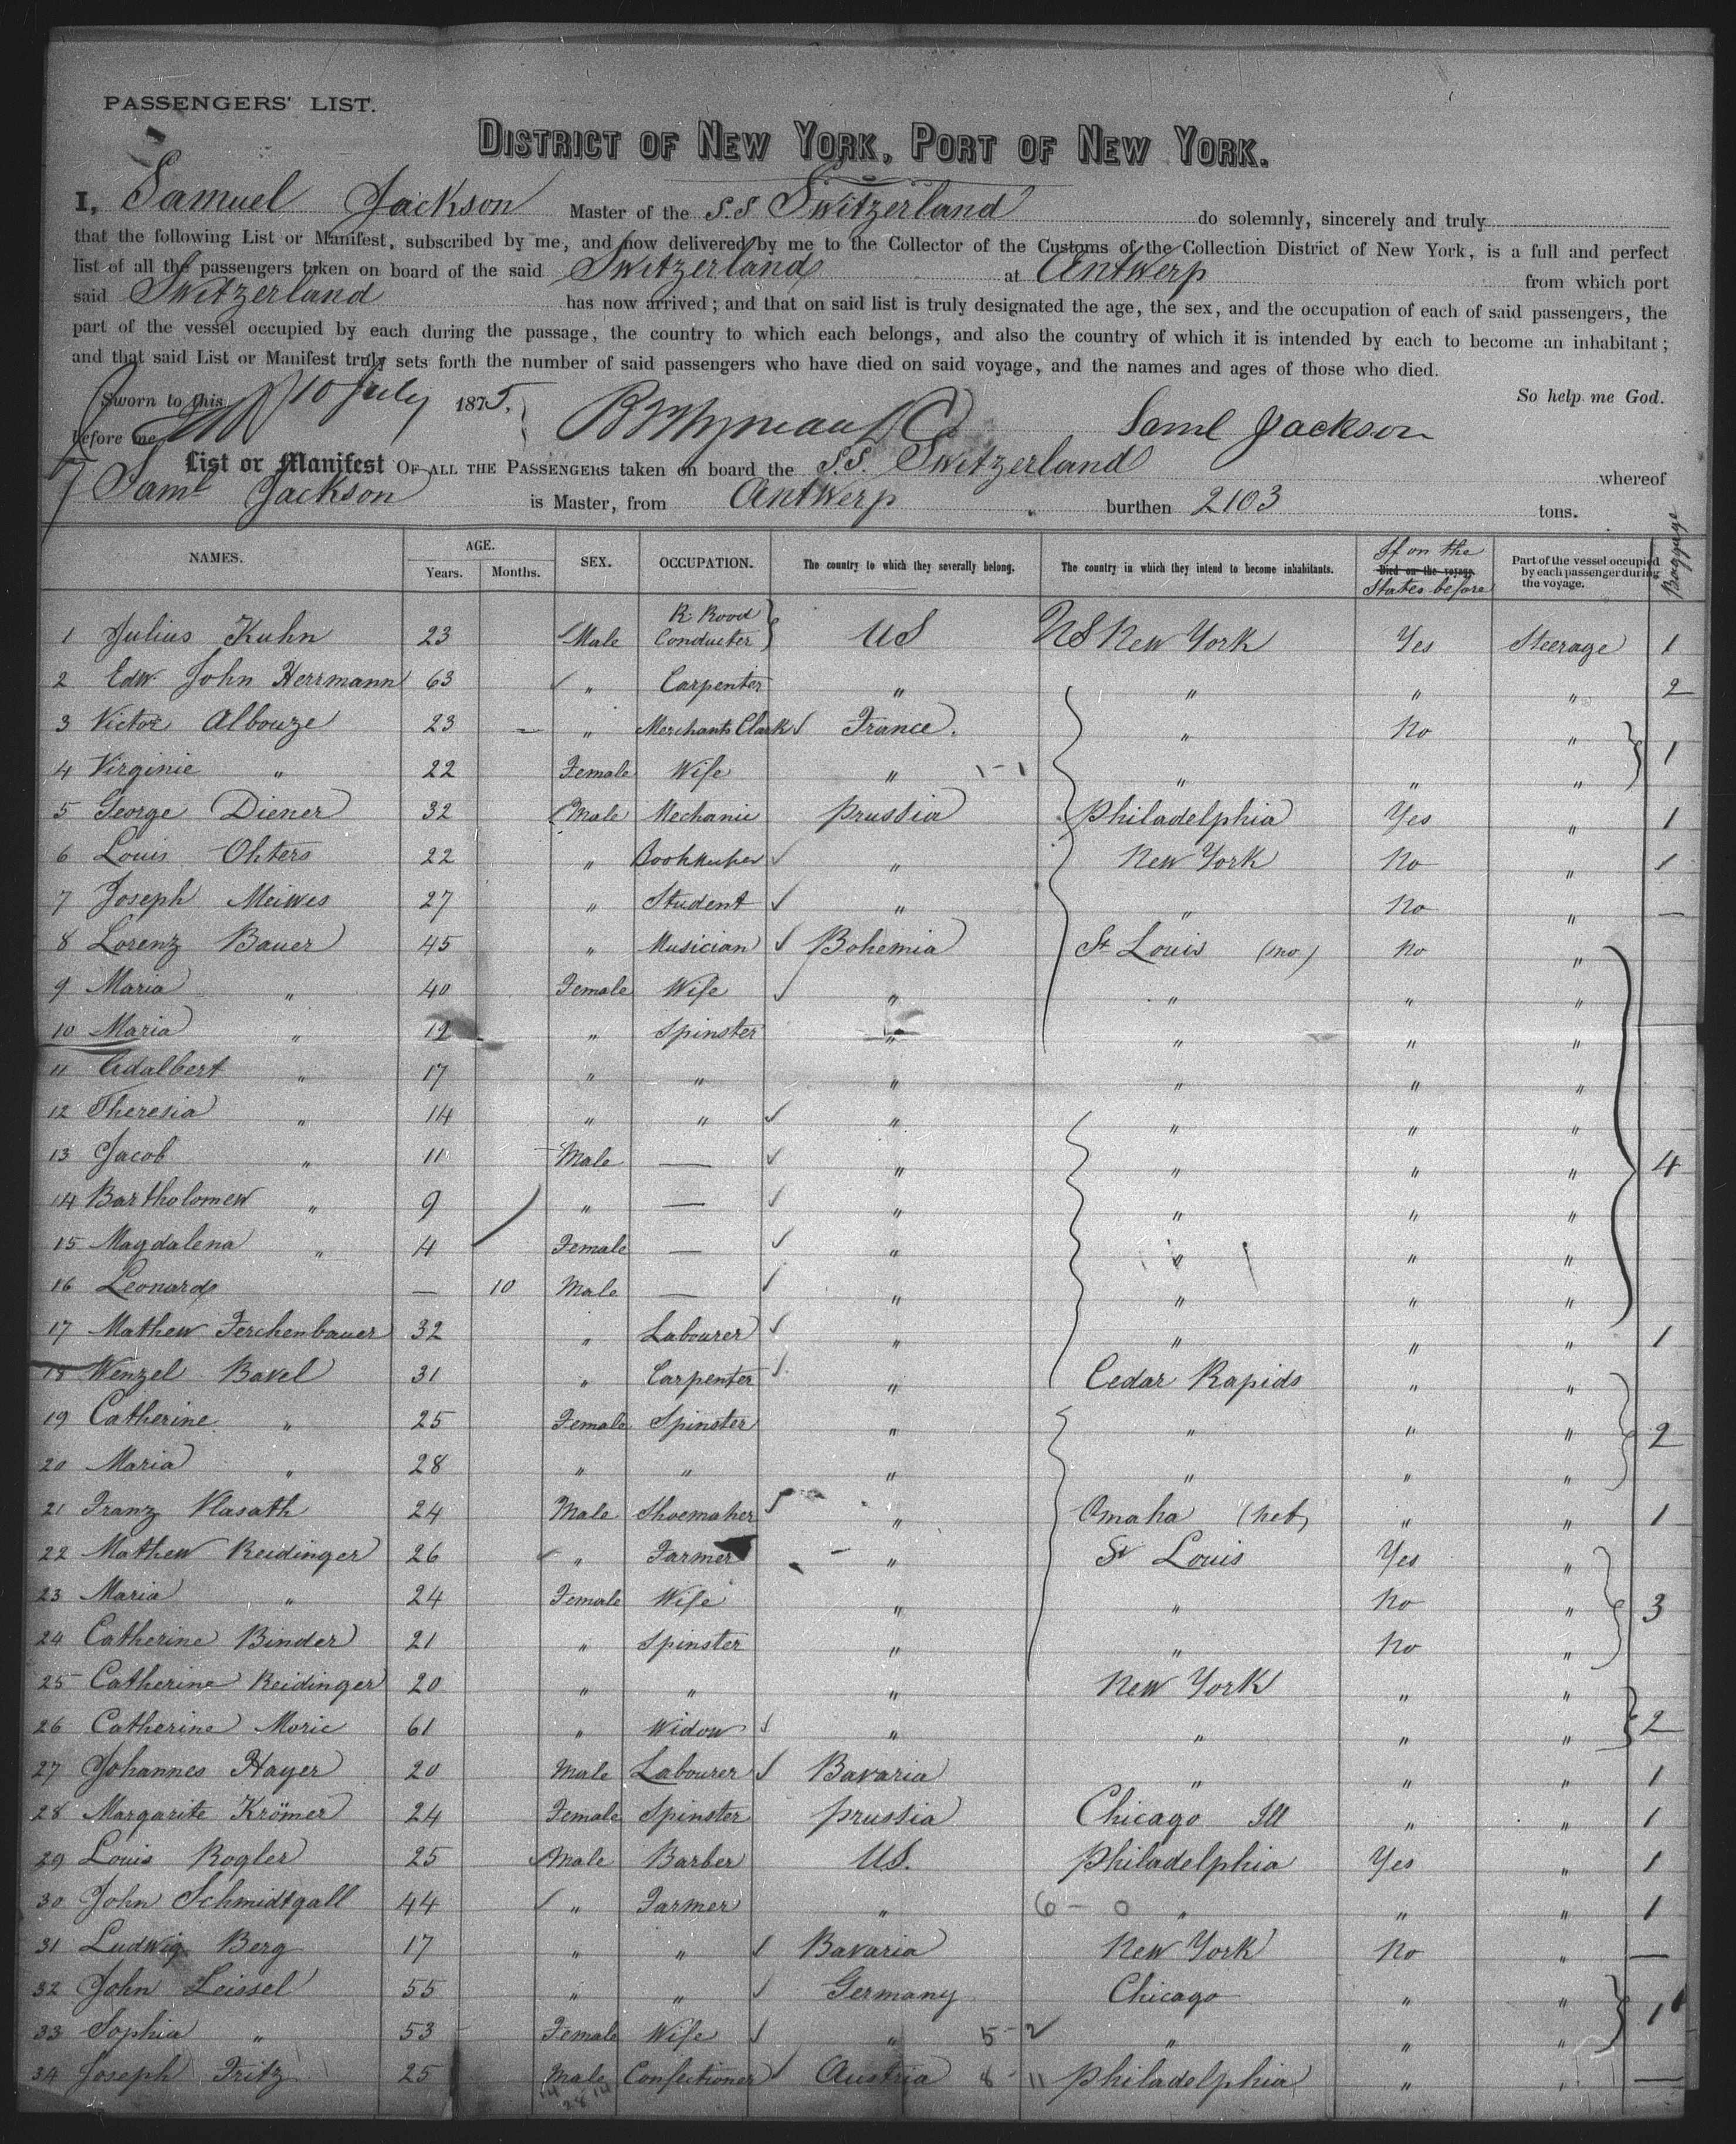 PASSENGERS' LIST.
DISTRICT OF NEW YORK, PORT OF NEW YORK.
I, Samuel Jackson Master of the S.S Switzerland do solemnly, sincerely and truly
that the following List or Manifest, subscribed by me, and now delivered by me to the Collector of the Customs of the Collection District of New York, is a full and perfect
list of all the passengers taken on board of the said Switzerland at Antwerp from which port
said Switzerland has now arrived; and that on said list is truly designated the age, the sex, and the occupation of each of said passengers, the
part of the vessel occupied by each during the passage, the country to which each belongs, and also the country of which it is intended by each to become an inhabitant;
and that said List or Manifest truly sets forth the number of said passengers who have died on said voyage, and the names and ages of those who died.
So help me God.
Sworn to this 10 July 1875.
before me Saml Jackson
List or Manifest OF ALL THE PASSENGERS taken on board the S.S. Switzerland whereof
Saml Jackson is Master, from Antwerp burthen 2103 tons.
NAMES. AGE. Years. Months. SEX. OCCUPATION. The country to which they severally belong. The country in which they intend to become inhabitants. Died on the voyage. If on the States before Part of the vessel occupied by each passenger during the voyage. Baggage
1 Julius Kuhn 23 Male R. Rood Conducter US US New York Yes Steerage 1
2 Edw John Herrmann 63 " Carpenter " " " " 2
3 Victor Albouze 23 — " Merchants Clark France. " No "
4 Virginie " 22 Female Wife " 1-1 " " " 1
5 George Diener 32 Male Mechanic Prussia Philadelphia Yes " 1
6 Louis Ohters 22 " Bookkeeper " New York No " 1
7 Joseph Meiwes 27 " Student " " No " —
8 Lorenz Bauer 45 " Musician Bohemia St Louis (Mo) No "
9 Maria " 40 Female Wife " " " "
10 Maria " 12 " Spinster " " " "
11 Adalbert " 17 " " " " " "
12 Theresia " 14 " " " " " "
13 Jacob " 11 Male — " " " " 4
14 Bartholomew " 9 " — " " " "
15 Magdalena " 4 Female — " " " "
16 Leonard — 10 Male — " " " "
17 Mathew Ferchenbauer 32 " Labourer " " " " 1
18 Wenzel Bavel 31 " Carpenter " Cedar Rapids " "
19 Catherine " 25 Female Spinster " " " " 2
20 Maria " 28 " " " " " "
21 Franz Klasath 24 Male Shoemaker " Omaha (Neb) " " 1
22 Mathew Reidinger 26 " Farmer " St Louis Yes "
23 Maria " 24 Female Wife " " No " 3
24 Catherine Binder 21 " Spinster " " No "
25 Catherine Reidinger 20 " " " New York " "
26 Catherine Moric 61 " Widow " " " " 2
27 Johannes Hayer 20 Male Labourer Bavaria " " " 1
28 Margarite Krömer 24 Female Spinster Prussia Chicago Ill " " 1
29 Louis Rogler 25 Male Barber US. Philadelphia Yes " 1
30 John Schmidtgall 44 " Farmer " 6-0 " " " 1
31 Ludwig Berg 17 " " Bavaria New York No " —
32 John Leissel 55 " " Germany Chicago " "
33 Sophia " 53 Female Wife " 5-2 " " " 1
34 Joseph Fritz 25 Male Confectioner Austria 8-11 Philadelphia " " —
14 14
28